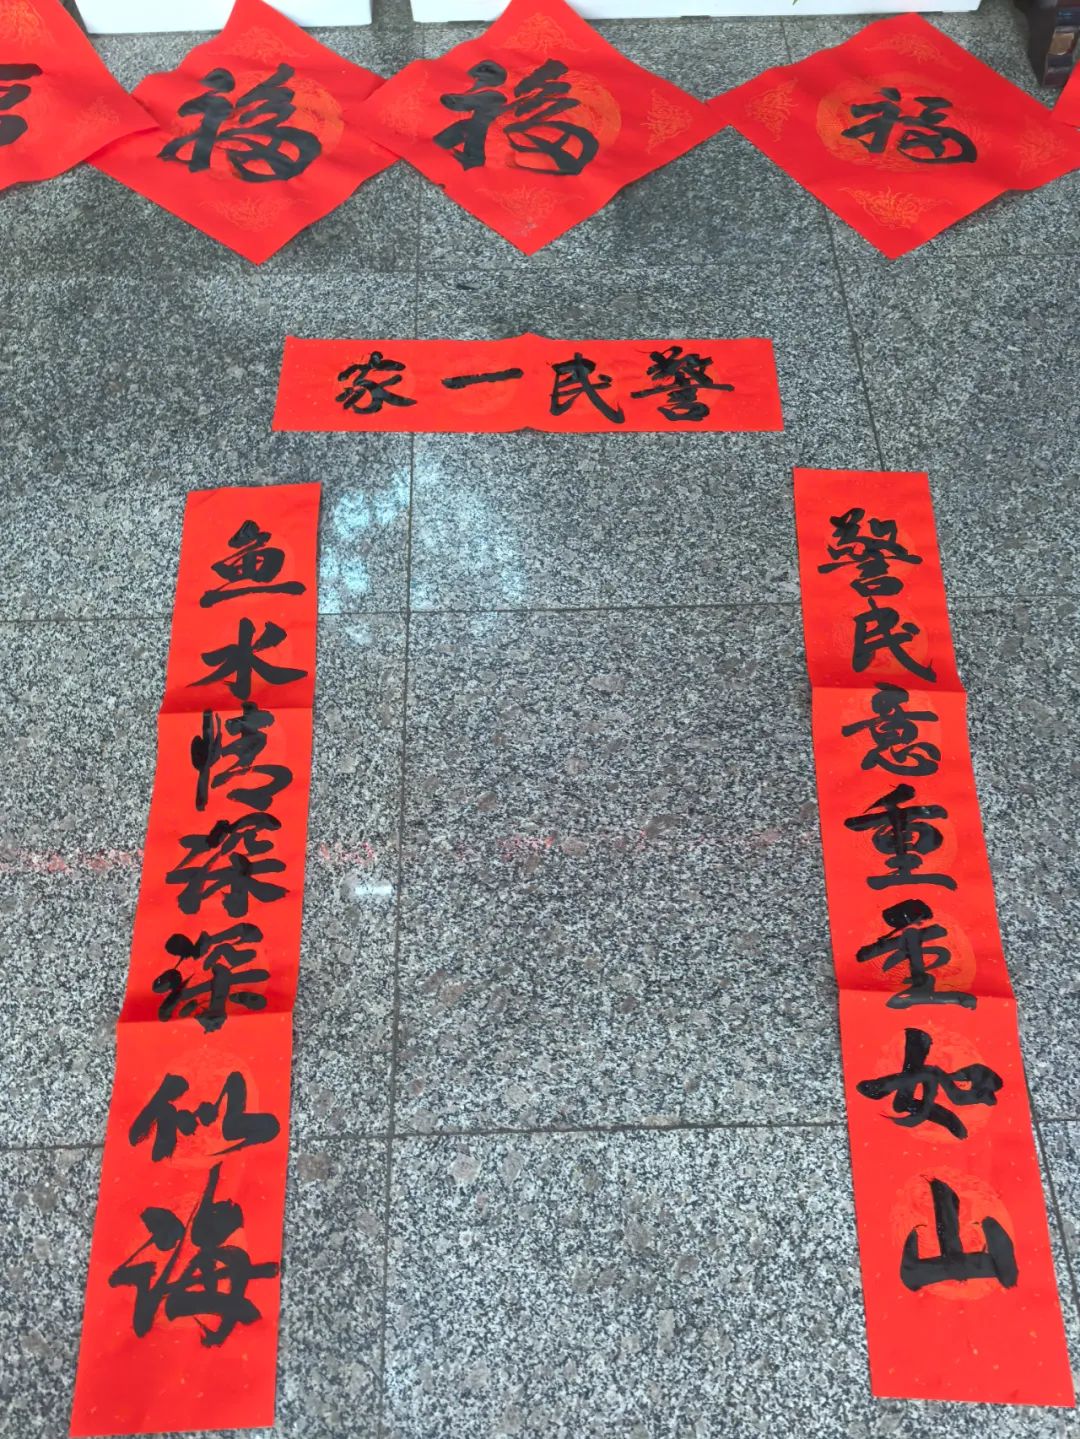 福
福
福
福
警民一家
警民意重重如山
鱼水情深深似海